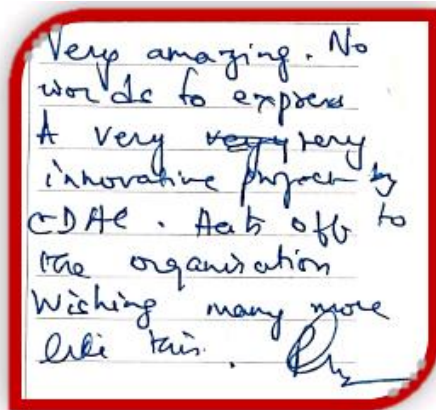 Very amazing. No
words to express
A very very very
innovative project by
CDAC. Hats off to
the organisation
Wishing many more
like this.